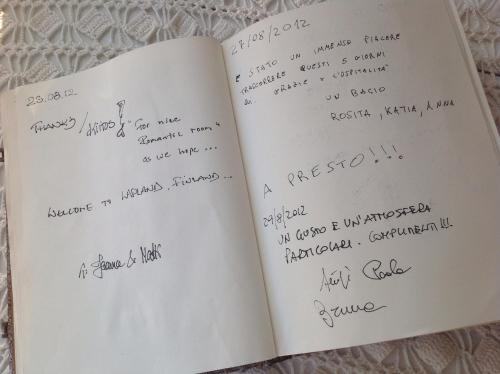 23.08.12
THANKS / KIITOS! "For nice
Romantic room"
as we hope...
WELCOME TO LAPLAND, FINLAND...
27/08/2012
E STATO UN IMMENSO PIACERE
TRASCORRERE QUESTI 5 GIORNI
GRAZIE X L'OSPITALITÀ
UN BACIO
ROSITA, KATIA, ANNA
A PRESTO!!!
29/8/2012
UN GUSTO E UN'ATMOSFERA
PARTICOLARI. COMPLIMENTI!!!
Paola
Bruna